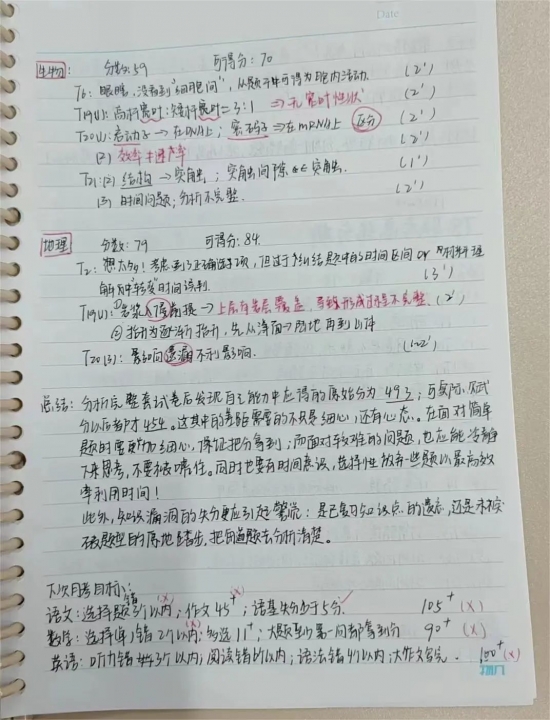 Date
生物: 分数:59 可得分:70
T6: 眼瞎, 没看到"细胞间", 从题干中可得为胞内活动. (2')
T19(4): 高秆 : 矮秆 = 3:1 ⇒ (2')
T20(1): 启动子→在DNA上; 密码子→在mRNA上 区分 (2')
(2) 效率+速率 (2')
T21:(2) 结构→突触; 突触间隙 突触. (1')
(3) 时间问题; 分析不完整. (2')
地理: 分数:79 可得分:84
T2: 想太多! 考虑到了正确选项, 但过于纠结题中的时间区间 or
解题中"转变"时间误判 (3')
T19(1): ① 岩浆入侵 → 上层有岩层覆盖, 形成过程不完整. (2')
② 抬升为逐渐抬升, 先从海面→陆地再到山体
T20(3): 影响 遗漏 不利影响. (1~2')
总结: 分析完整套试卷后发现自己能力中应得的原始分为493; 可实际 赋
分以后都才454. 这其中的差距需要的不只是细心, 还有心态。在面对简单
题时需更加细心, 保证把分拿到; 而面对较难的问题, 也应能冷静
下来思考, 不要被唬住。同时也要有时间意识, 选择性放弃一些题以最高效
率利用时间!
此外, 知识漏洞的失分更应引起警觉: 是已复习知识点的遗忘, 还是未接
触题型的原地踏步. 把问题去分析清楚。
下次月考目标:
语文: 选择题错3个以内(x); 作文45+(x); 诺基失分少于5分✓ 105+ (x)
数学: 选择单1错2个以内(x); 多选11+; 大题 第一问都拿到分 90+ (x)
英语: 听力错 3个以内; 阅读错 以内; 语法错 个以内; 大作文写完. 100+ (x)